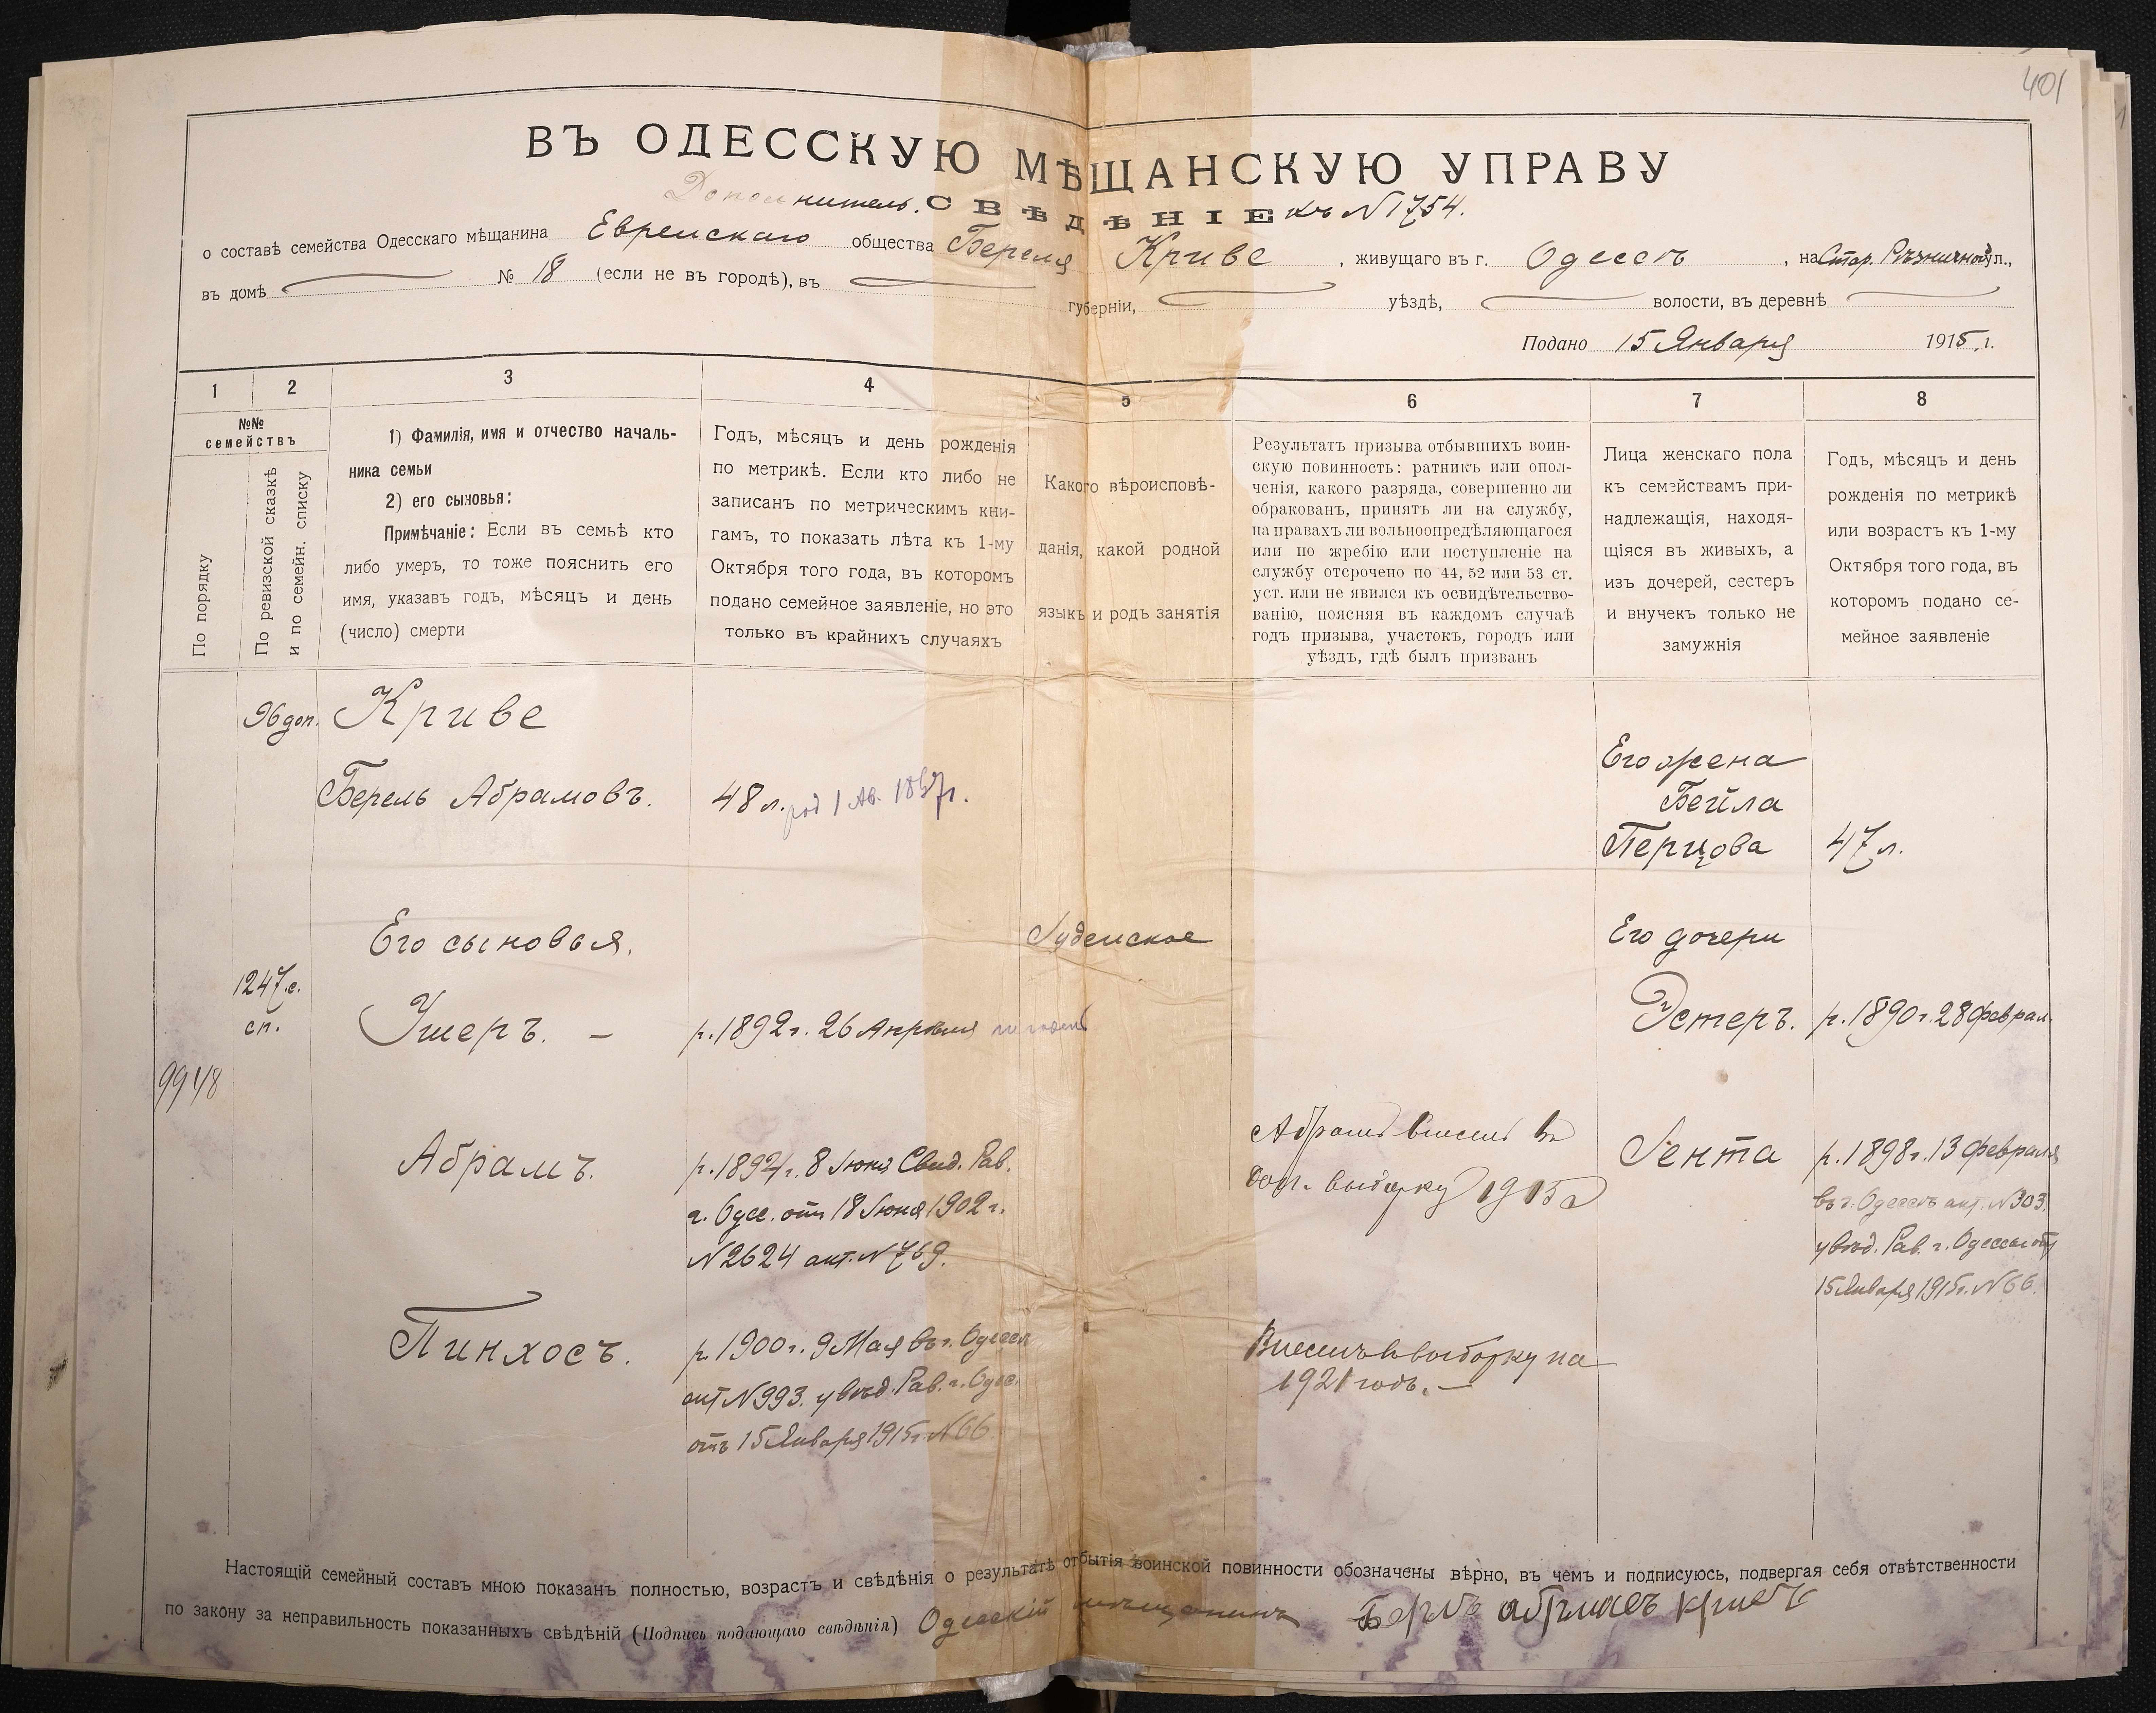 401
ВЪ ОДЕССКУЮ МѢЩАНСКУЮ УПРАВУ
Дополнитель. СВѢДѢНІЕ къ №1754.
о составѣ семейства Одесскаго мѣщанина Еврейскаго общества Береля Криве, живущаго въ г. Одессѣ, на Стар. Рѣзничной ул.,
въ домѣ № 18 (если не въ городѣ), въ губерніи, уѣздѣ, волости, въ деревнѣ
Подано 15 Января 1915 г.
1 2 3 4 5 6 7 8
№№
семействъ
По порядку
По ревизской сказкѣ
и по семейн. списку
1) Фамилія, имя и отчество началь-
ника семьи
2) его сыновья:
Примѣчаніе: Если въ семьѣ кто
либо умеръ, то тоже пояснить его
имя, указавъ годъ, мѣсяцъ и день
(число) смерти
Годъ, мѣсяцъ и день рожденія
по метрикѣ. Если кто либо не
записанъ по метрическимъ кни-
гамъ, то показать лѣта къ 1-му
Октября того года, въ которомъ
подано семейное заявленіе, но это
только въ крайнихъ случаяхъ
Какого вѣроисповѣ-
данія, какой родной
языкъ и родъ занятія
Результатъ призыва отбывшихъ воин-
скую повинность: ратникъ или опол-
ченія, какого разряда, совершенно ли
обракованъ, принятъ ли на службу,
на правахъ ли вольноопредѣляющагося
или по жребію или поступленіе на
службу отсрочено по 44, 52 или 53 ст.
уст. или не явился къ освидѣтельство-
ванію, поясняя въ каждомъ случаѣ
годъ призыва, участокъ, городъ или
уѣздъ, гдѣ былъ призванъ
Лица женскаго пола
къ семействамъ при-
надлежащія, находя-
щіяся въ живыхъ, а
изъ дочерей, сестеръ
и внучекъ только не
замужнія
Годъ, мѣсяцъ и день
рожденія по метрикѣ
или возрастъ къ 1-му
Октября того года, въ
которомъ подано се-
мейное заявленіе
96 доп. Криве
Берель Абрамовъ. 48 л. род 1 Ав.
Его жена
Бейла
Перцова 47 л.
Его сыновья.
Іудейское
Его дочери
1247 с.
сп.
Ушеръ. – р. 1892 г. 26 Апрѣля
Эстеръ. р. 1890 г. 28 феврал.
9948
Абрамъ. р. 1894 г. 8 Іюня Свид. Рав.
г. Одес. отъ 18 Іюня 1902 г.
№2624 акт. №769.
Абрамъ внесенъ въ
доп. выборку 1915 г
Гента р. 1898 г. 13 февраля
въ г. Одессѣ акт. №303.
увѣд. Рав. г. Одессы отъ
15 Января 1915 г. №66.
Пинхосъ. р. 1900 г. 9 Мая въ г. Одессѣ
акт №993. увѣд. Рав. г. Одес.
отъ 15 Января 1915 г. №66
Внесенъ въ выборку на
1921 годъ. –
Настоящій семейный составъ мною показанъ полностью, возрастъ и свѣдѣнія о результатѣ отбытія воинской повинности обозначены вѣрно, въ чемъ и подписуюсь, подвергая себя отвѣтственности
по закону за неправильность показанныхъ свѣдѣній (Подпись подающаго свѣдѣнія) Одесскій мѣщанинъ